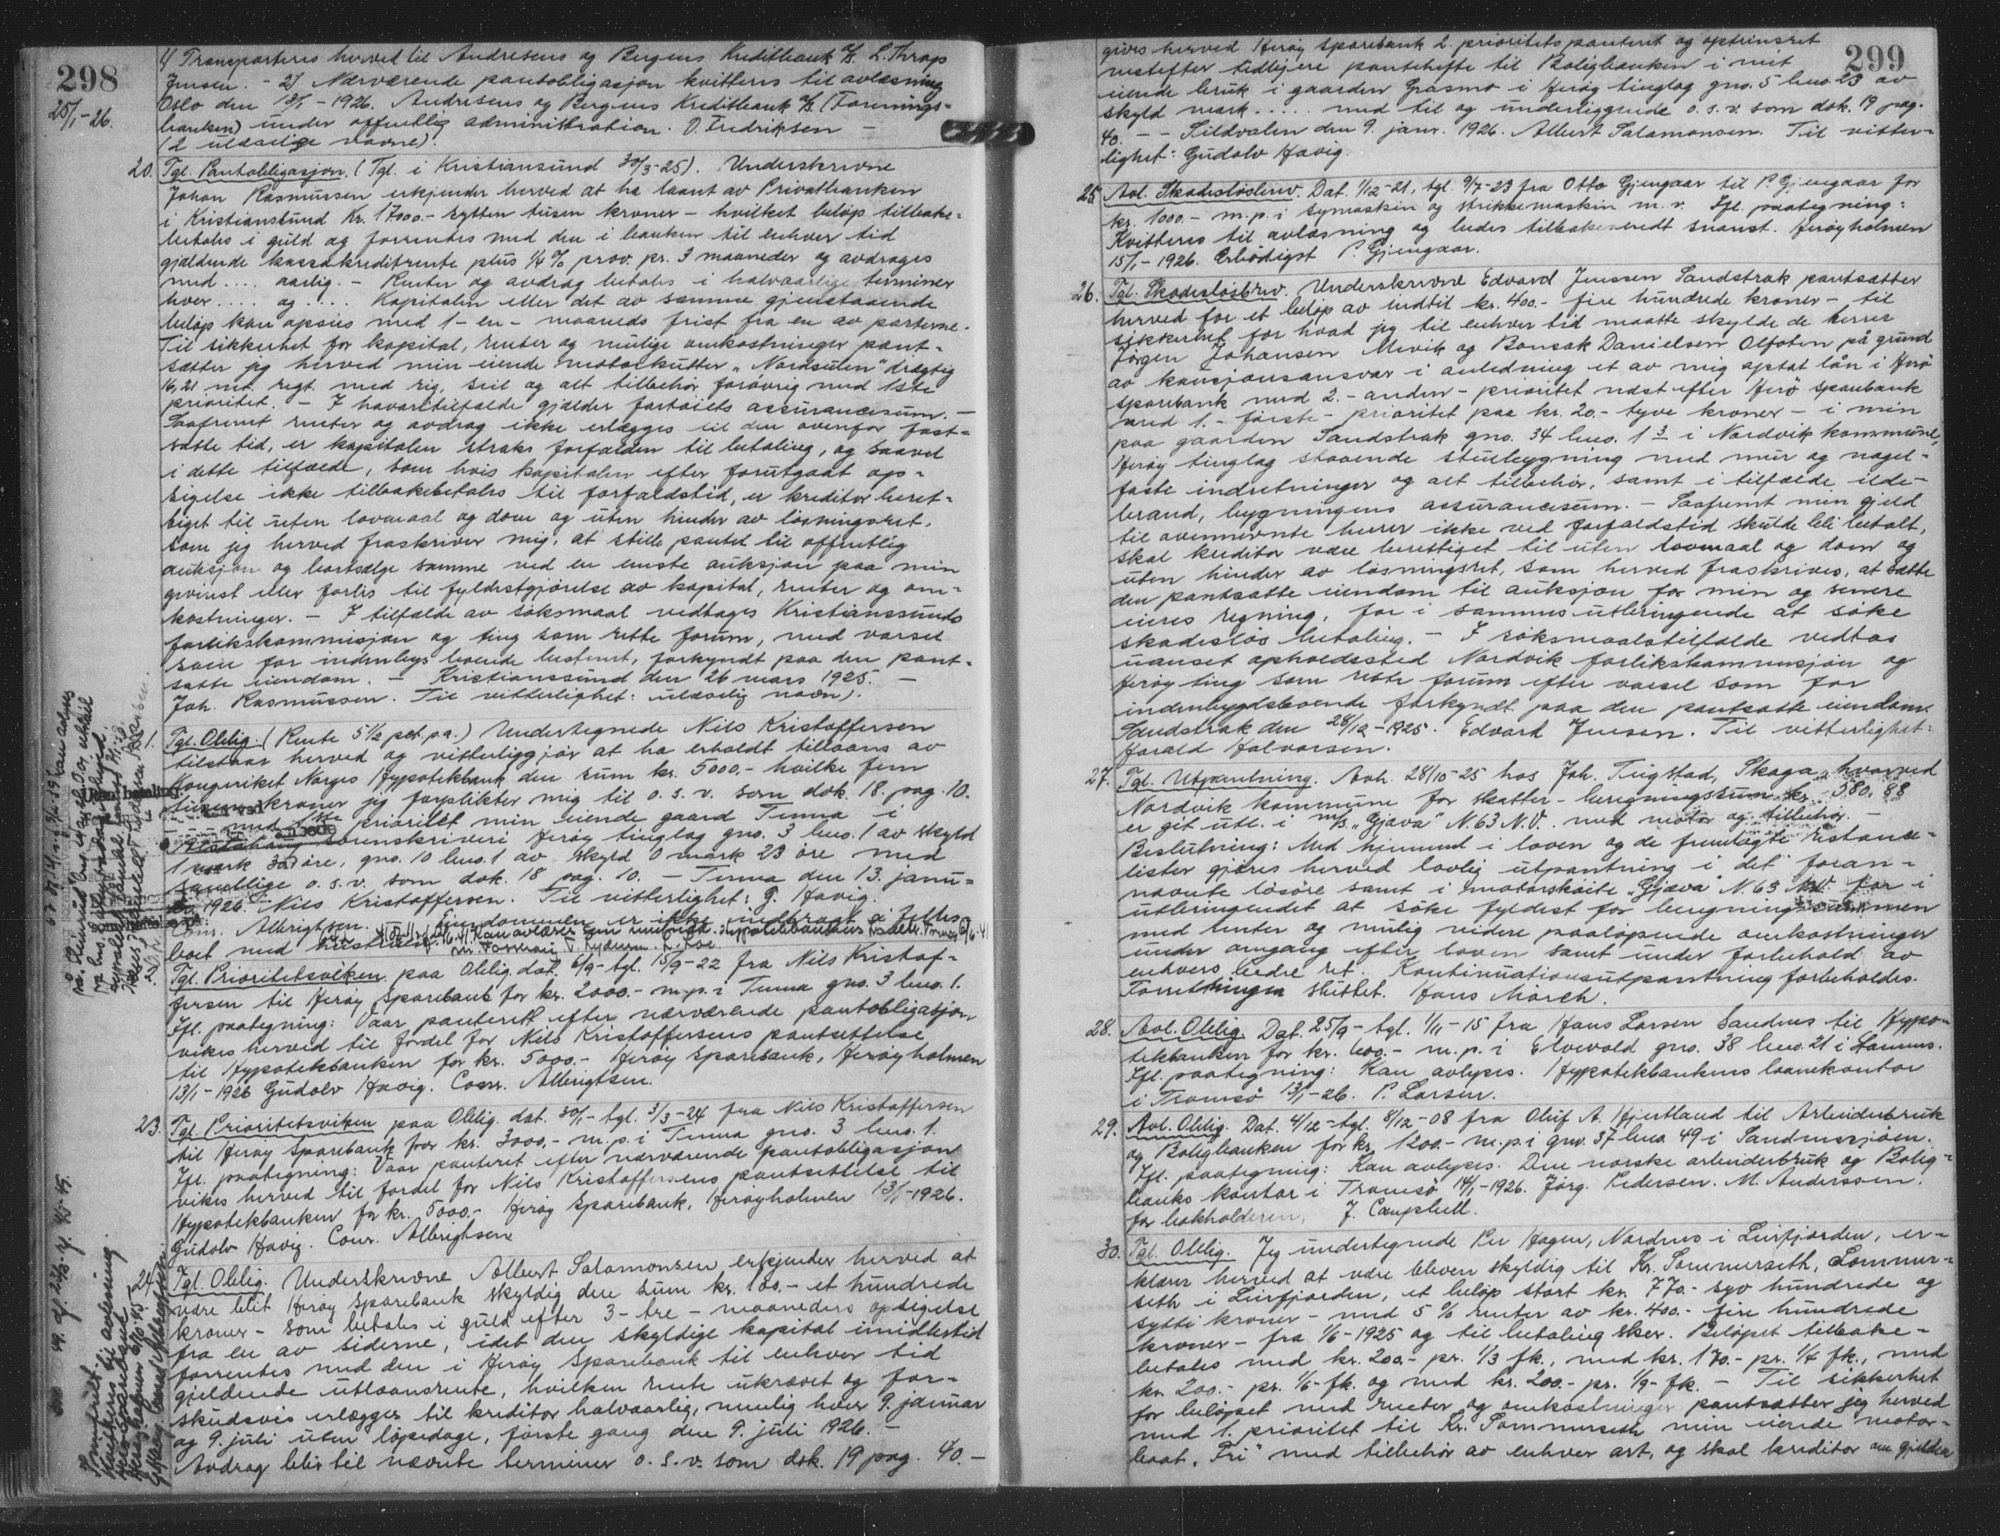 298
25/1-26.
1) Transporteres herved til Andresens og Bergens Kreditbank A/S. L. Thrap
Jensen. - 2) Nærværende pantobligasjon kvitteres til avlæsning
Oslo den 13/1-1926. Andresens og Bergens Kreditbank A/S (Forenings-
banken) under offentlig administration. O. Fredriksen —
(2 ulæselige navne).
20. Tgl. Pantobligasjon. (Tgl. i Kristiansund 30/3-25). Underskrevne
Johan Rasmussen erkjender herved at ha laant av Privatbanken
i Kristiansund Kr. 17000.- sytten tusen kroner - hvilket beløp tilbake-
betales i guld og forrentes med den i banken til enhver tid
gjældende kassakreditrente plus 1/4 % prov. pr. 3 maaneder og avdrages
med .... aarlig. - Renter og avdrag betales i halvaarlige terminer
hver .... og .... Kapitalen eller det av samme gjenstaaende
beløp kan opsies med 1 - en - maaneds frist fra en av parterne.
Til sikkerhet for kapital, renter og mulige omkostninger pant-
sætter jeg herved min eiende motorkutter „Nordsulen" drægtig
16,21 net. regt. med rig, seil og alt tilbehør forøvrig med 1ste
prioritet. - I havaritilfælde gjælder fartøiets assurancesum. —
Saafremt renter og avdrag ikke erlægges til den ovenfor fast-
satte tid, er kapitalen straks forfalden til betaling, og saavel
i dette tilfælde, som hvis kapitalen efter forutgaat op-
sigelse ikke tilbakebetales til forfaldstid, er kreditor beret-
tiget til uten lovmaal og dom og uten hinder av løsningsret,
som jeg herved fraskriver mig, at stille pantet til offentlig
auksjon og bortsælge samme ved en eneste auksjon paa min
gevinst eller forlis til fyldestgjørelse av kapital, renter og om-
kostninger. - I tilfælde av søksmaal vedtages Kristianssunds
forlikskommisjon og ting som rette forum, med varsel
som for indenbys boende bestemt, forkyndt paa den pant-
satte eiendom. - Kristianssund den 26 mars 1925. —
Joh. Rasmussen. Til vitterlighet: ulæselig navn).
Tgl. Oblig. (Rente 5 1/2 pct. p.a.) Undertegnede Nils Kristoffersen
tilstaar herved og vitterliggjør at ha erholdt tillaans av
Kongeriket Norges Hypotekbank den sum kr. 5000.- hvilke fem
tusen kroner jeg forplikter mig til o. s. v. som dok. 18. pag. 10.
- - - med 1ste prioritet min eiende gaard Tenna i
sorenskriveri Herøy tinglag gno. 3 bno. 1 av skyld
1 mark 35 øre, gno. 10 bno. 1 av skyld 0 mark 23 øre med
samtlige o. s. v. som dok. 18 pag. 10. - Tenna den 13. janu-
1926. Nils Kristoffersen. Til vitterlighet: G. Havig.
Conr. Albrigtsen. Eiendommen er ikke indbragt i fælles
boet med
Tgl. Prioritetsviken paa Oblig. dat. 6/9- tgl. 15/9-22 fra Nils Kristof-
fersen til Herøy Sparebank for kr. 2000.- m.p. i Tenna gno. 3 bno. 1.
Ifl. paategning: Vaar panteret efter nærværende pantobligasjon
vikes herved til fordel for Nils Kristoffersens pantsettelse
til Hypotekbanken for kr. 5000.- Herøy Sparebank, Herøyholmen
13/1-1926 Gudolv Havig. Conr. Albrigtsen.
23. Tgl. Prioritetsviken paa Oblig. dat. 30/1- tgl. 3/3-24 fra Nils Kristoffersen
til Herøy Sparebank for kr. 3000.- m.p. i Tenna gno. 3 bno. 1.
Ifl. paategning: Vaar panteret efter nærværende pantobligasjon
vikes herved til fordel for Nils Kristoffersens pantsettelse til
Hypotekbanken for kr. 5000.- Herøy Sparebank, Herøyholmen 13/1-1926.
Gudolv Havig. Conr. Albrigtsen
24. Tgl. Oblig. Underskrevne Albert Salamonsen, erkjender herved at
være blit Herøy Sparebank skyldig den sum kr. 100.- et hundrede
kroner - som betales i guld efter 3 - tre - maaneders opsigelse
fra en av siderne, idet den skyldige kapital imidlertid
forrentes med den i Herøy Sparebank til enhver tid
gjeldende utlaansrente, hvilken rente ukrævet og for-
skudsvis erlægges til kreditor halvaarlig, nemlig hver 9. januar
og 9. juli uten løpedage, første gang den 9. juli 1926. —
Avdrag blir til nævnte terminer o. s. v. som dok. 19 pag. 40. —
299
gives herved Herøy Sparebank 2. prioritets panteret og optrinsret
nestefter tidligere pantehefte til Boligbanken i mit
eiende bruk i gaarden Grasmo i Herøy tinglag gno. 5 bno. 23 av
skyld mark .... med til og underliggende o. s. v. som dok. 19 pag.
40. - - Sildvalen den 9. janr. 1926. Albert Salamonsen. Til vitter-
lighet: Gudolv Havig.
25. Avl. Skadesløsbrev. Dat. 1/12-21, tgl. 9/7-23 fra Otto Gjengaar til P. Gjengaar for
kr. 1000.- m.p. i symaskin og strikkemaskin m. v. Ifl. paategning:
Kvitteres til avlæsning og bedes tilbakesendt snarest. Herøyholmen
15/1-1926. Erbødigst P. Gjengaar.
26. Tgl. Skadesløsbrev. Underskrevne Edvard Jensen Sandstrak pantsætter
herved for et beløp av indtil kr. 400.- fire hundrede kroner - til
sikkerhet for hvad jeg til enhver tid maatte skylde de herrer
Jørgen Johansen Mevik og Bonsak Danielsen Olfoten på grund
av kausjonsansvar i anledning et av mig optat lån i Herø
Sparebank med 2. - anden - prioritet næst efter Herø Sparebank
med 1. - første - prioritet paa kr. 20.- tyve kroner - i min
paa gaarden Sandstrak gno. 34 bno. 1 3 i Nordvik kommune,
Herøy tinglag staaende stuebygning med mur og nagel-
faste indretninger og alt tilbehør, samt i tilfælde ilde-
brand, bygningens assurancesum. - Saafremt min gjeld
til ovennævnte herrer ikke ved forfaldstid skulde bli betalt,
skal kreditor være berettiget til uten lovmaal og dom og
uten hinder av løsningsret, som herved fraskrives, at sætte
den pantsatte eiendom til auksjon for min og senere
eieres regning, for i sammes utbringende at søke
skadesløs betaling. - I søksmaalstilfælde vedtas
uanset opholdssted Nordvik forlikskommisjon og
Herøy ting som rette forum efter varsel som for
indenbygdsboende forkyndt paa den pantsatte eiendom.
Sandstrak den 28/12-1925. Edvard Jensen. Til vitterlighet:
Harald Halvorsen.
27. Tgl. Utpantning. Avh. 28/10-25 hos Joh. Tingstad, Skaga, hvorved
Nordvik kommune for skatter - beregningssum kr. 580,88
er git utl. i M/S „Gjæva" N. 63 N.V. med motor og tilbehør. —
Beslutning: Med hjemmel i loven og de fremlagte restance-
lister gjøres herved lovlig utpantning i det foran-
nævnte løsøre samt i motorskøite „Gjæva" N. 63 N.V. for i
utbringendet at søke fyldest for beregningssummen
med renter og mulig videre paaløpende omkostninger
under omgang efter loven samt under forbehold av
enhvers bedre ret. Kontinuationsutpantning forbeholdes.
Forretningen sluttet. Hans Mörch.
28. Avl. Oblig. Dat. 25/9- tgl. 1/11-15 fra Hans Larsen Sandnes til Hypo-
tekbanken for kr. 600.- m.p. i Elvevold gno. 38 bno. 21 i Stamnes.
Ifl. paategning: Kan avlyses. Hypotekbankens laanekontor
i Tromsø 13/1-26. P. Larsen.
29. Avl. Oblig. Dat. 4/12- tgl. 8/12-08 fra Oluf A. Hjertland til Arbeiderbruk
og Boligbanken for kr. 1200.- m.p. i gno. 37 bno. 49 i Sandnessjøen.
Ifl. paategning: Kan avlyses. Den norske arbeiderbruk og Bolig-
banks kontor i Tromsø 14/1-1926. Jörg. Pedersen. M. Anderssen.
for bokholderen. J. Campbell.
30. Tgl. Oblig. Jeg undertegnede Per Hagen, Nordnes i Leirfjorden, er-
klærer herved at være bleven skyldig til Kr. Sommerseth, Sommer-
seth i Leirfjorden, et beløp stort kr. 770.- syv hundrede og
sytti kroner - med 5 % renter av kr. 400.- fire hundrede
kroner - fra 1/6-1925 og til betaling sker. Beløpet tilbake-
betales med kr. 200.- pr. 1/3 fk., med kr. 170.- pr. 1/4 fk., med
kr. 200.- pr. 1/6- fk. og med kr. 200.- pr. 1/9- fk. - Til sikkerhet
for beløpet med renter og omkostninger pantsætter jeg herved
med 1. prioritet til Kr. Sommerseth min eiende motor-
baat „Fri" med tilbehør av enhver art, og skal kreditor om gjelden